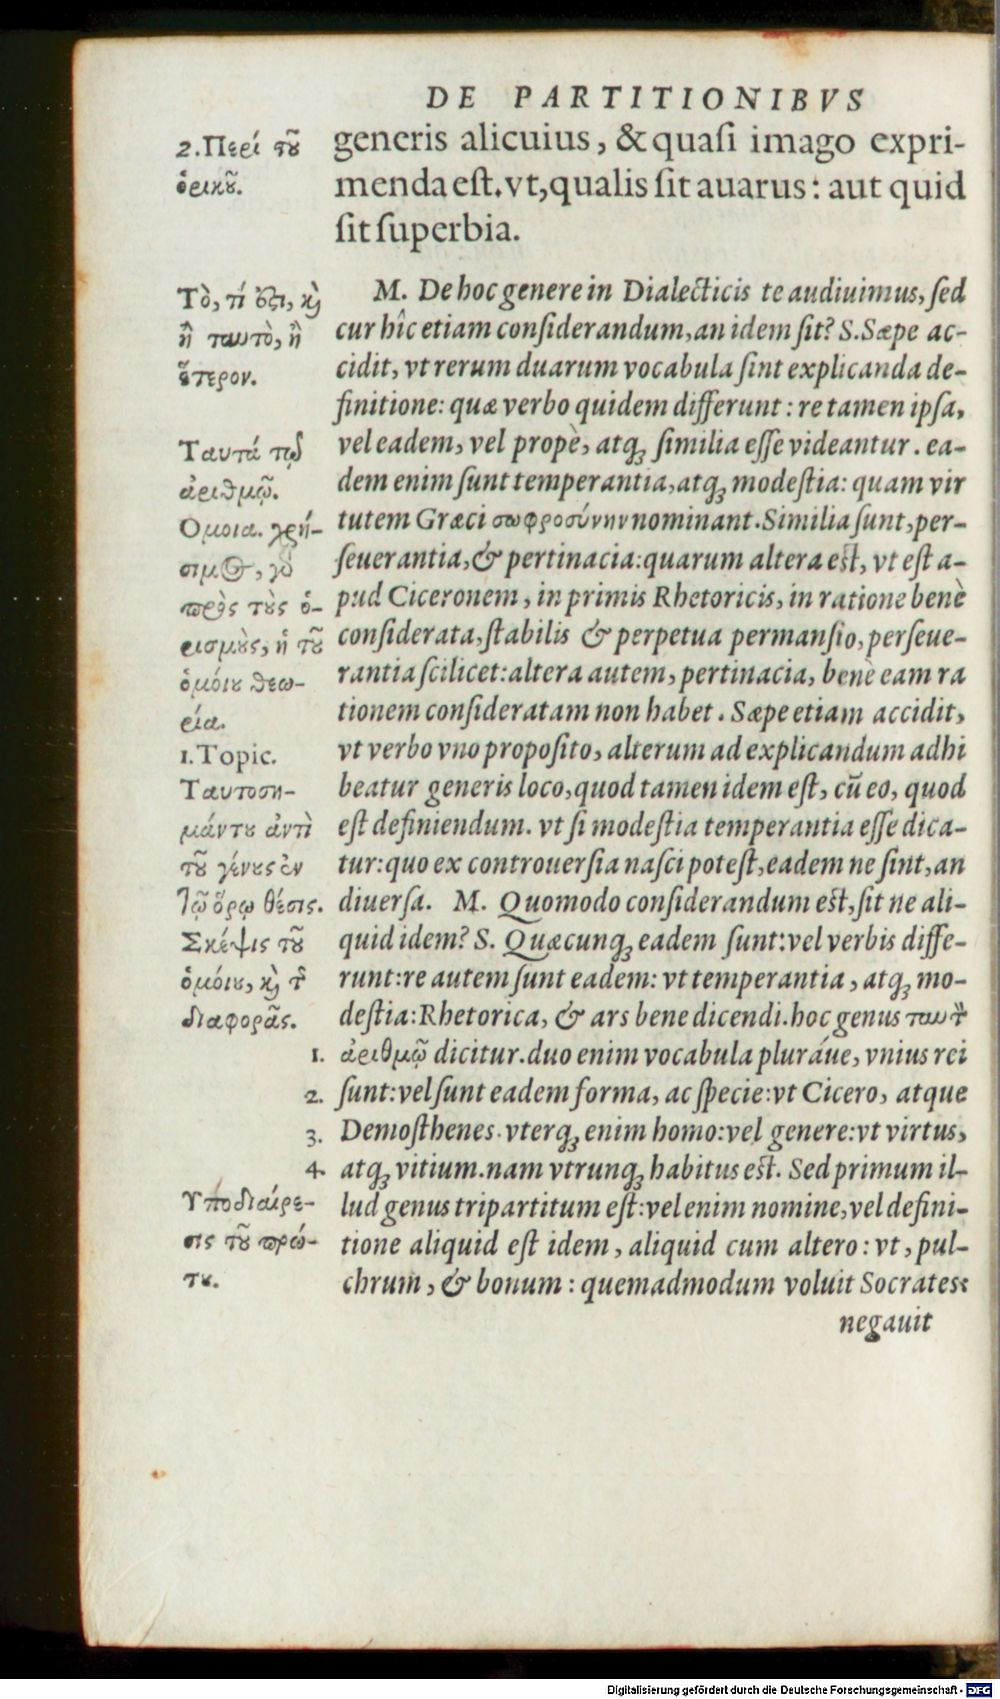 DE PARTITIONIBVS
generis alicuius, & quaſi imago expri-
menda eſt. vt, qualis ſit auarus: aut quid
ſit ſuperbia.
M. De hoc genere in Dialecticis te audiuimus, ſed
cur hîc etiam conſiderandum, an idem ſit? S. Sæpe ac-
cidit, vt rerum duarum vocabula ſint explicanda de-
finitione: quæ verbo quidem differunt: re tamen ipſa,
vel eadem, vel propè, atq; ſimilia eſſe videantur. ea-
dem enim ſunt temperantia, atq; modeſtia: quam vir
tutem Græci σωφροσύνην nominant. Similia ſunt, per-
ſeuerantia, & pertinacia: quarum altera eſt, vt eſt a-
pud Ciceronem, in primis Rhetoricis, in ratione benè
conſiderata, ſtabilis & perpetua permanſio, perſeue-
rantia ſcilicet: altera autem, pertinacia, benè eam ra
tionem conſideratam non habet. Sæpe etiam accidit,
vt verbo vno propoſito, alterum ad explicandum adhi
beatur generis loco, quod tamen idem eſt, cū eo, quod
eſt definiendum. vt ſi modeſtia temperantia eſſe dica-
tur: quo ex controuerſia naſci poteſt, eadem ne ſint, an
diuerſa. M. Quomodo conſiderandum eſt, ſit ne ali-
quid idem? S. Quæcunq; eadem ſunt: vel verbis diffe-
runt: re autem ſunt eadem: vt temperantia, atq; mo-
deſtia: Rhetorica, & ars bene dicendi. hoc genus ταυτ̀
ἀριθμῷ dicitur. duo enim vocabula pluráue, vnius rei
ſunt: vel ſunt eadem forma, ac ſpecie: vt Cicero, atque
Demoſthenes. vterq; enim homo: vel genere: vt virtus,
atq; vitium. nam vtrunq; habitus eſt. Sed primum il-
lud genus tripartitum eſt: vel enim nomine, vel defini-
tione aliquid eſt idem, aliquid cum altero: vt, pul-
chrum, & bonum: quemadmodum voluit Socrates:
negauit
2. Περί τοῦ
ὁρικοῦ.
Τὸ, τί ὅτι, καὶ
ἢ ταυτὸ, ἢ
ἕτερον.
Ταυτά τῷ
ἀριθμῷ.
Ομοια. χρή-
σιμος,
πρὸς τοὺς ὁ-
ρισμοὺς, ἡ τοῦ
ὁμοίου θεω-
ρία.
1. Topic.
Ταυτοση-
μάντου ἀντὶ
τοῦ γένους ἐν
τῷ ὅρῳ θέσις.
Σκέψις τοῦ
ὁμοίου, καὶ τῆς
διαφορᾶς.
1.
2.
3.
4.
Υποδιαίρε-
σις τοῦ πρώ-
του.
Digitalisierung gefördert durch die Deutsche Forschungsgemeinschaft - DFG